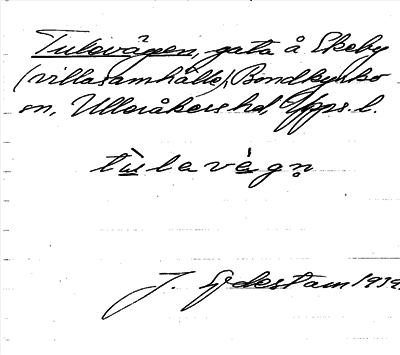 Tulevägen, gata å Skeby
(villasamhälle), Bondkyrko
sn, Ulleråkers hd, Upps. l.
tùlavègn̥
J. 1939